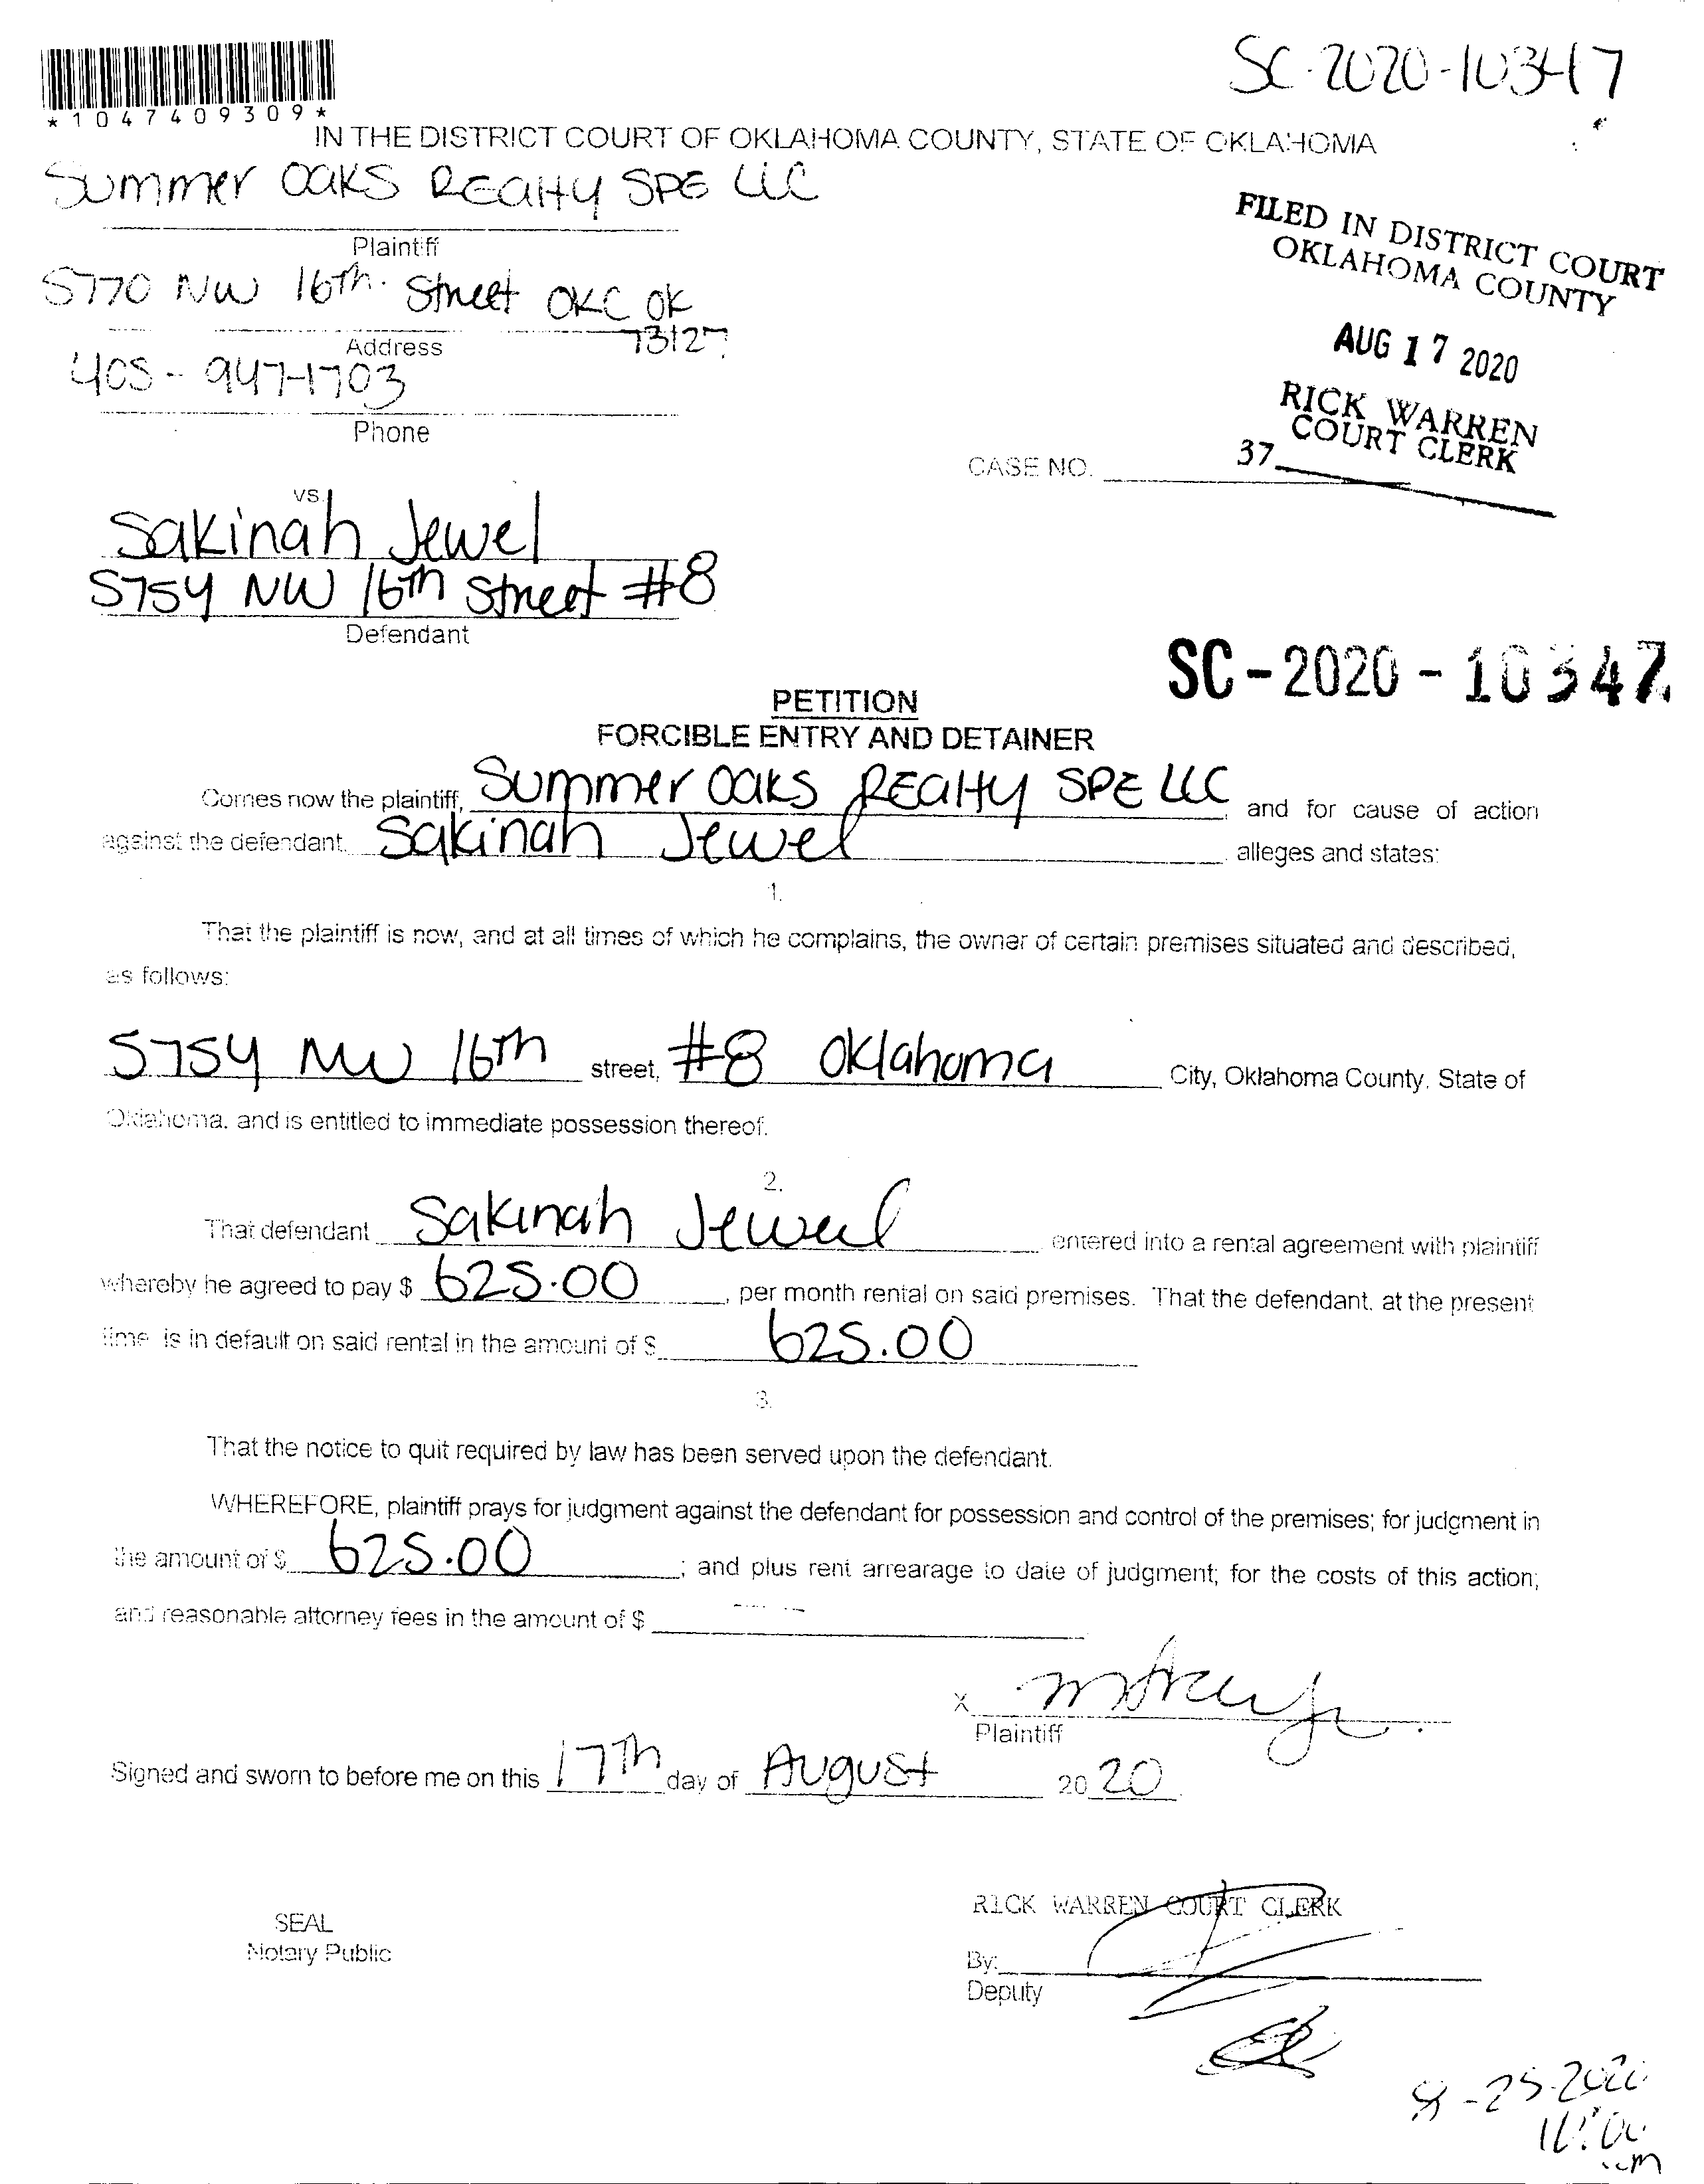 SC-2020-10347
*1047409309*
IN THE DISTRICT COURT OF OKLAHOMA COUNTY, STATE OF OKLAHOMA
Summer Oaks REalty SPE LLC
Plaintiff
FILED IN DISTRICT COURT
OKLAHOMA COUNTY
5770 NW 16th. Street OKC OK
73127
Address
AUG 17 2020
405-947-1703
Phone
RICK WARREN
COURT CLERK
37
CASE NO.
vs.
Sakinah Jewel
5754 NW 16th Street #8
Defendant
SC-2020-10347
PETITION
FORCIBLE ENTRY AND DETAINER
Comes now the plaintiff, Summer Oaks REalty SPE LLC, and for cause of action
against the defendant, Sakinah Jewel alleges and states:
1.
That the plaintiff is now, and at all times of which he complains, the owner of certain premises situated and described,
as follows:
5754 NW 16th street, #8 Oklahoma City, Oklahoma County, State of
Oklahoma, and is entitled to immediate possession thereof.
2.
That defendant Sakinah Jewel entered into a rental agreement with plaintiff
whereby he agreed to pay $ 625.00, per month rental on said premises. That the defendant, at the present
time is in default on said rental in the amount of $ 625.00
3.
That the notice to quit required by law has been served upon the defendant.
WHEREFORE, plaintiff prays for judgment against the defendant for possession and control of the premises; for judgment in
the amount of $ 625.00; and plus rent arrearage to date of judgment; for the costs of this action;
and reasonable attorney fees in the amount of $
X
Plaintiff
Signed and sworn to before me on this 17th day of August 2020
RICK WARREN COURT CLERK
SEAL
Notary Public
By:
Deputy
8-25-2020